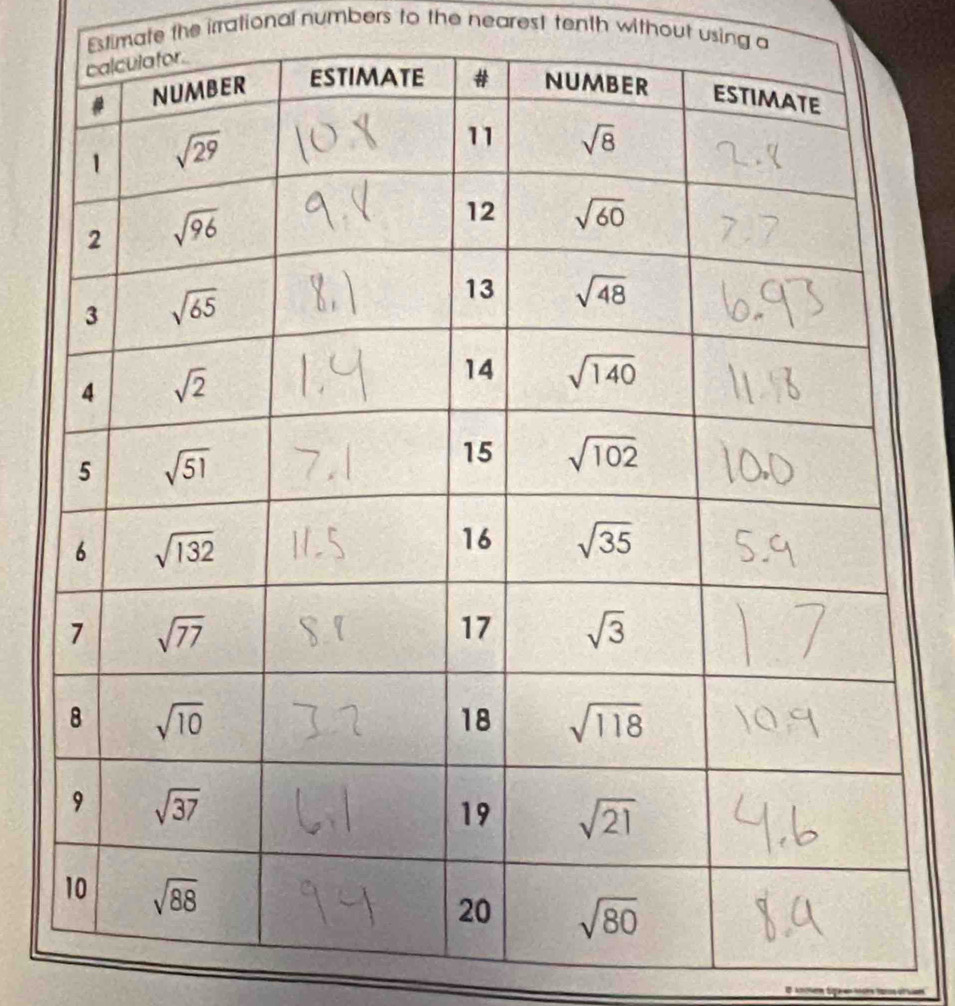 Estimate the irrational numbers to the nearest tenth without using a
calculator.
# NUMBER ESTIMATE # NUMBER ESTIMATE
1 √29 10.8 11 √8 2.8
2 √96 9.8 12 √60 7.7
3 √65 8.1 13 √48 6.93
4 √2 1.4 14 √140 11.18
5 √51 7.1 15 √102 10.0
6 √132 11.5 16 √35 5.9
7 √77 8.8 17 √3 1.7
8 √10 3.2 18 √118 10.9
9 √37 6.1 19 √21 4.6
10 √88 9.4 20 √80 8.9